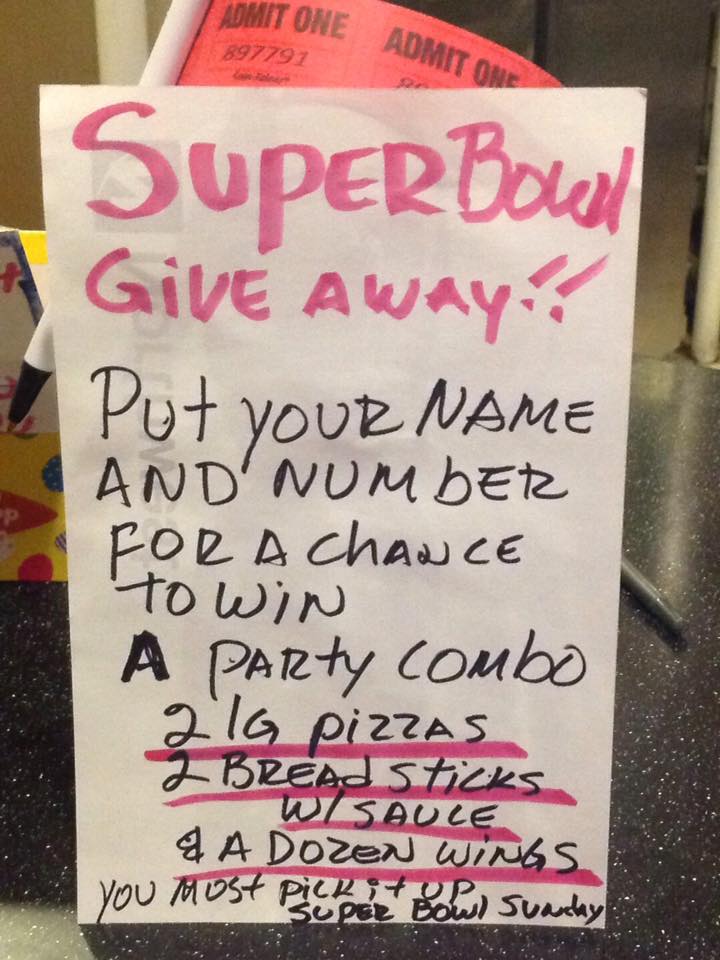 ADMIT ONE
897791
ADMIT ONE
SUPER BOWl
GiVE AWAY!!
Put YOUR NAME
AND NUMbER
FOR A ChANCE
TO WiN
A PARty COMbO
2 lG PiZZAS
2 BREAd StiCKS
W/ SAUCE
& A DOZEN WiNGS
YOU MUSt PiCK it UP
SUPER BOWl SUNdAy